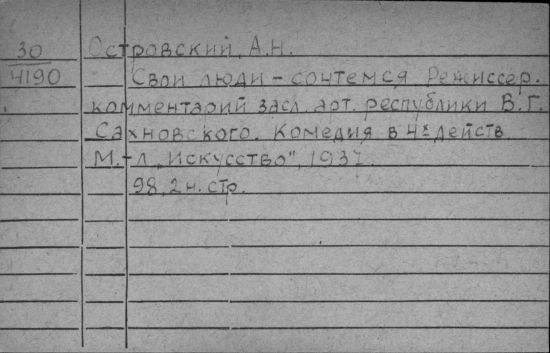 30 Островский, А.Н.
4190 Свои люди – сочтемся. Режиссер.
комментарий засл. арт. республики В.Г.
Сахновского. Комедия в 4х действ.
М.-Л. „Искусство", 1937.
98, 2 н. стр.